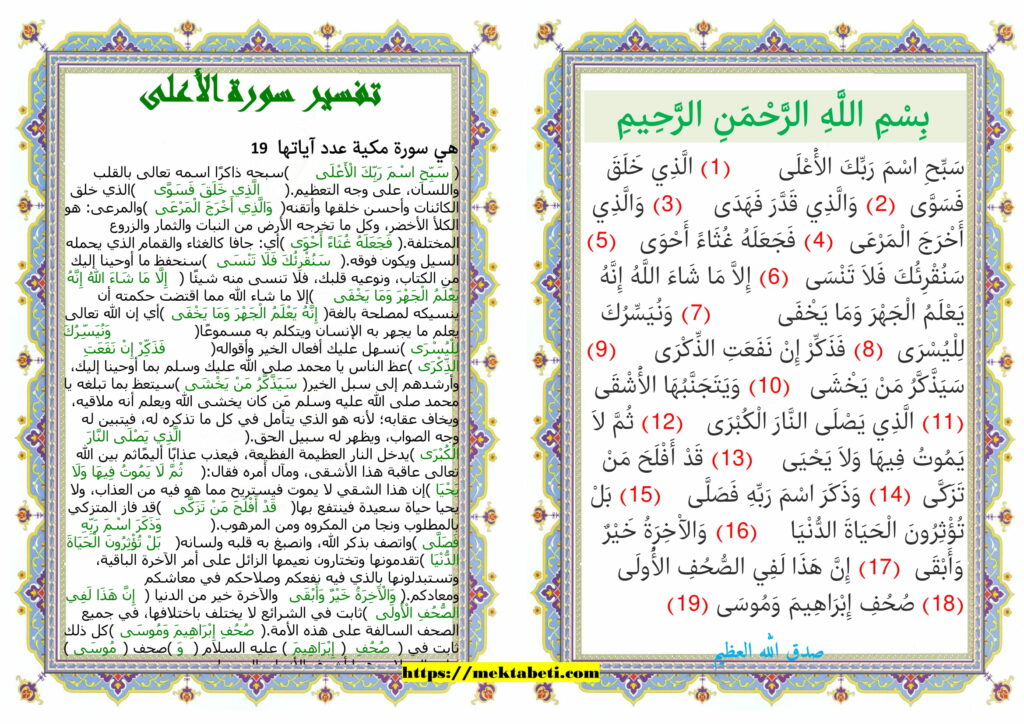 بِسْمِ اللَّهِ الرَّحْمَنِ الرَّحِيمِ
سَبِّحِ اسْمَ رَبِّكَ الْأَعْلَى (1) الَّذِي خَلَقَ
فَسَوَّى (2) وَالَّذِي قَدَّرَ فَهَدَى (3) وَالَّذِي
أَخْرَجَ الْمَرْعَى (4) فَجَعَلَهُ غُثَاءً أَحْوَى (5)
سَنُقْرِئُكَ فَلَا تَنْسَى (6) إِلَّا مَا شَاءَ اللَّهُ إِنَّهُ
يَعْلَمُ الْجَهْرَ وَمَا يَخْفَى (7) وَنُيَسِّرُكَ
لِلْيُسْرَى (8) فَذَكِّرْ إِنْ نَفَعَتِ الذِّكْرَى (9)
سَيَذَّكَّرُ مَنْ يَخْشَى (10) وَيَتَجَنَّبُهَا الْأَشْقَى
(11) الَّذِي يَصْلَى النَّارَ الْكُبْرَى (12) ثُمَّ لَا
يَمُوتُ فِيهَا وَلَا يَحْيَى (13) قَدْ أَفْلَحَ مَنْ
تَزَكَّى (14) وَذَكَرَ اسْمَ رَبِّهِ فَصَلَّى (15) بَلْ
تُؤْثِرُونَ الْحَيَاةَ الدُّنْيَا (16) وَالْآخِرَةُ خَيْرٌ
وَأَبْقَى (17) إِنَّ هَذَا لَفِي الصُّحُفِ الْأُولَى
(18) صُحُفِ إِبْرَاهِيمَ وَمُوسَى (19)
صدق الله العظيم
تفسير سورة الأعلى
هي سورة مكية عدد آياتها 19
( سَبِّحِ اسْمَ رَبِّكَ الْأَعْلَى )سبحه ذاكرًا اسمه تعالى بالقلب
واللسان، على وجه التعظيم.( الَّذِي خَلَقَ فَسَوَّى )الذي خلق
الكائنات وأحسن خلقها وأتقنه( وَالَّذِي أَخْرَجَ الْمَرْعَى )والمرعى: هو
الكلأ الأخضر، وكل ما تخرجه الأرض من النبات والثمار والزروع
المختلفة.( فَجَعَلَهُ غُثَاءً أَحْوَى )أي: جافا كالغثاء والقمام الذي يحمله
السيل ويكون فوقه.( سَنُقْرِئُكَ فَلَا تَنْسَى )سنحفظ ما أوحينا إليك
من الكتاب، ونوعيه قلبك، فلا تنسى منه شيئًا ( إِلَّا مَا شَاءَ اللَّهُ إِنَّهُ
يَعْلَمُ الْجَهْرَ وَمَا يَخْفَى )إلا ما شاء الله مما اقتضت حكمته أن
ينسيكه لمصلحة بالغة( إِنَّهُ يَعْلَمُ الْجَهْرَ وَمَا يَخْفَى )أي إن الله تعالى
يعلم ما يجهر به الإنسان ويتكلم به مسموعًا( وَنُيَسِّرُكَ
لِلْيُسْرَى )نسهل عليك أفعال الخير وأقواله( فَذَكِّرْ إِنْ نَفَعَتِ
الذِّكْرَى )عظ الناس يا محمد صلى الله عليك وسلم بما أوحينا إليك،
وأرشدهم إلى سبل الخير( سَيَذَّكَّرُ مَنْ يَخْشَى )سيتعظ بما تبلغه يا
محمد صلى الله عليه وسلم مَن كان يخشى الله ويعلم أنه ملاقيه،
ويخاف عقابه؛ لأنه هو الذي يتأمل في كل ما تذكره له، فيتبين له
وجه الصواب، ويظهر له سبيل الحق.( الَّذِي يَصْلَى النَّارَ
الْكُبْرَى )يدخل النار العظيمة الفظيعة، فيعذب عذابًا أليمًاثم بين الله
تعالى عاقبة هذا الأشقى، ومآل أمره فقال:( ثُمَّ لَا يَمُوتُ فِيهَا وَلَا
يَحْيَا )إن هذا الشقي لا يموت فيستريح مما هو فيه من العذاب، ولا
يحيا حياة سعيدة فينتفع بها( قَدْ أَفْلَحَ مَنْ تَزَكَّى )قد فاز المتزكي
بالمطلوب ونجا من المكروه ومن المرهوب.( وَذَكَرَ اسْمَ رَبِّهِ
فَصَلَّى )واتصف بذكر الله، وانصبغ به قلبه ولسانه( بَلْ تُؤْثِرُونَ الْحَيَاةَ
الدُّنْيَا )تقدمونها وتختارون نعيمها الزائل على أمر الآخرة الباقية،
وتستبدلونها بالذي فيه نفعكم وصلاحكم في معاشكم
ومعادكم.( وَالْآخِرَةُ خَيْرٌ وَأَبْقَى والآخرة خير من الدنيا ( إِنَّ هَذَا لَفِي
الصُّحُفِ الْأُولَى )ثابت في الشرائع لا يختلف باختلافها، في جميع
الصحف السالفة على هذه الأمة.( صُحُفِ إِبْرَاهِيمَ وَمُوسَى )كل ذلك
ثابت في ( صُحُفِ ( إِبْرَاهِيمَ ) عليه السلام ( وَ )صحف ( مُوسَى )
https://mektabeti.com